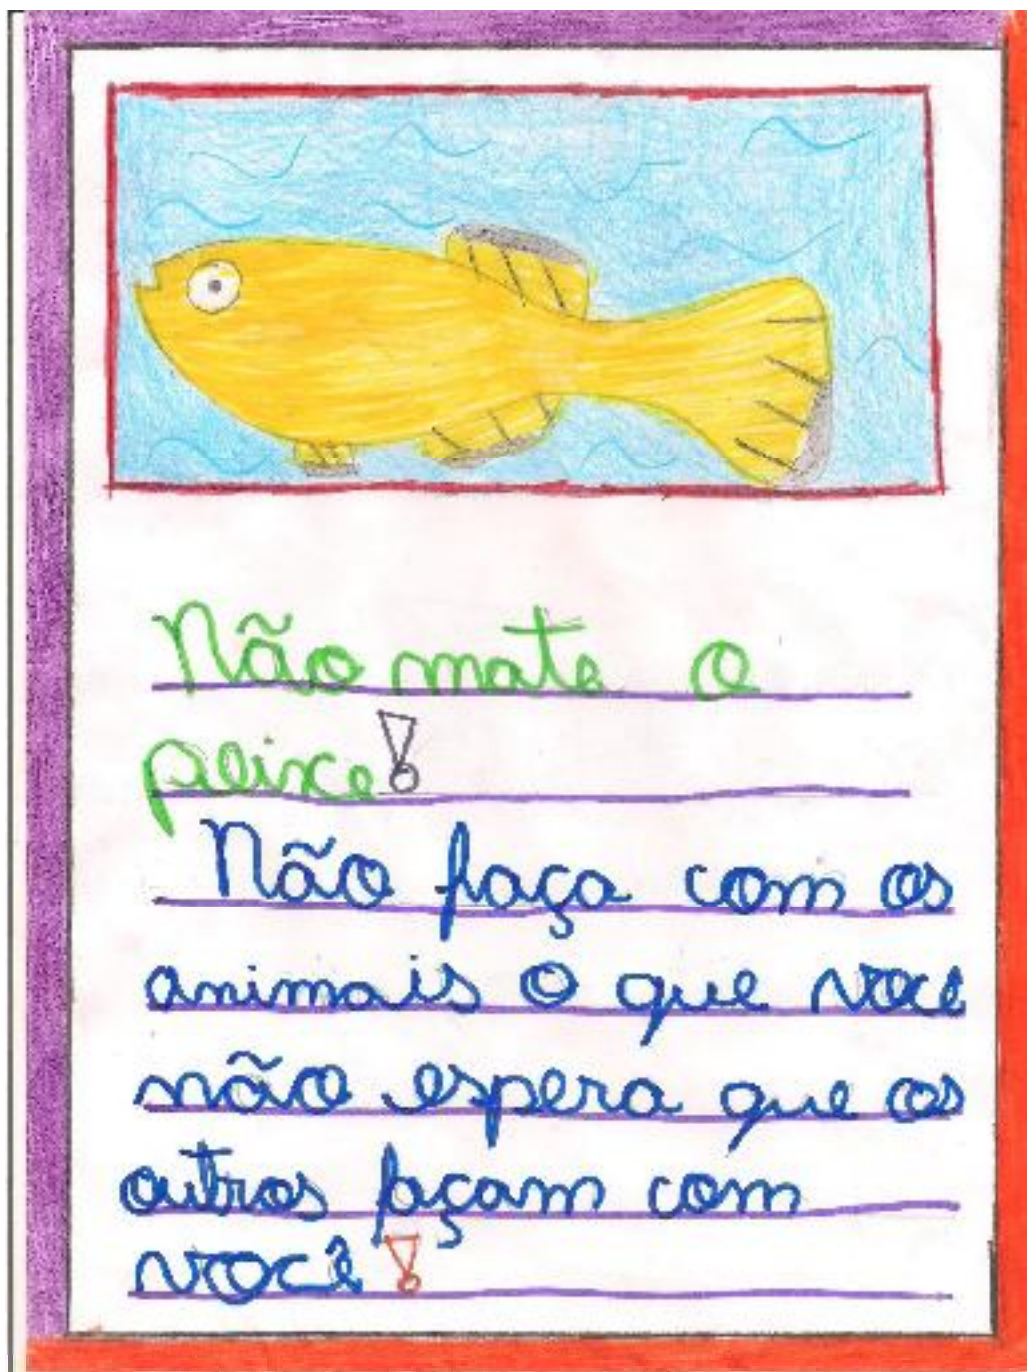 Não mate o
peixe!
Não faça com os
animais o que você
não espera que os
outros façam com
você!